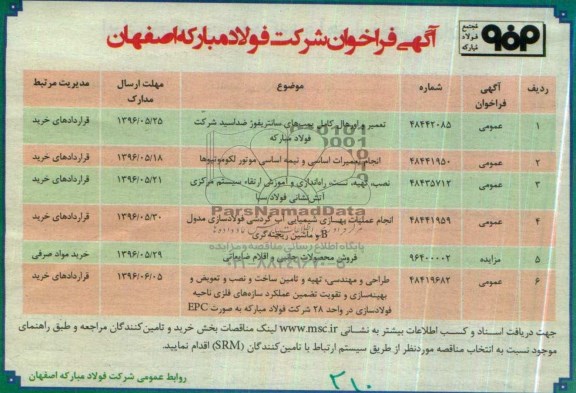 آگهی فراخوان شرکت فولاد مبارکه اصفهان
مجتمع
فولاد
مبارکه
ردیف آگهی فراخوان شماره موضوع مهلت ارسال مدارک مدیریت مرتبط
۱ عمومی ۴۸۴۴۲۰۸۵ تعمیر و اورهال کامل پمپ‌های سانتریفوژ ضداسید شرکت ۱۳۹۶/۰۵/۲۵ قراردادهای خرید
فولاد مبارکه
۲ عمومی ۴۸۴۴۱۹۵۰ انجام تعمیرات اساسی و نیمه اساسی موتور لکوموتیوها ۱۳۹۶/۰۵/۱۸ قراردادهای خرید
۳ عمومی ۴۸۴۳۵۷۱۲ نصب، تهیه، تست، راه‌اندازی و آموزش ارتقاء سیستم مرکزی ۱۳۹۶/۰۵/۲۱ قراردادهای خرید
آتش‌نشانی فولاد سبا
۴ عمومی ۴۸۴۴۱۹۵۹ انجام عملیات بهسازی شیمیایی آب گردشی فولادسازی مدول ۱۳۹۶/۰۵/۳۰ قراردادهای خرید
B و ماشین ریخته‌گری
۵ مزایده ۹۶۴۰۰۰۰۲ فروش محصولات جانبی و اقلام ضایعاتی ۱۳۹۶/۰۵/۲۹ خرید مواد مصرفی
۶ عمومی ۴۸۴۱۹۶۸۲ طراحی و مهندسی، تهیه و تامین ساخت و نصب و تعویض و ۱۳۹۶/۰۶/۰۵ قراردادهای خرید
بهینه‌سازی و تقویت تضمین عملکرد سازه‌های فلزی ناحیه
فولادسازی در واحد ۲۸ شرکت فولاد مبارکه به صورت EPC
ParsNamadData
پایگاه اطلاع رسانی مناقصه و مزایده
جهت دریافت اسناد و کسب اطلاعات بیشتر به نشانی www.msc.ir لینک مناقصات بخش خرید و تامین‌کنندگان مراجعه و طبق راهنمای
موجود نسبت به انتخاب مناقصه موردنظر از طریق سیستم ارتباط با تامین‌کنندگان (SRM) اقدام نمایید.
روابط عمومی شرکت فولاد مبارکه اصفهان
۲۱۰